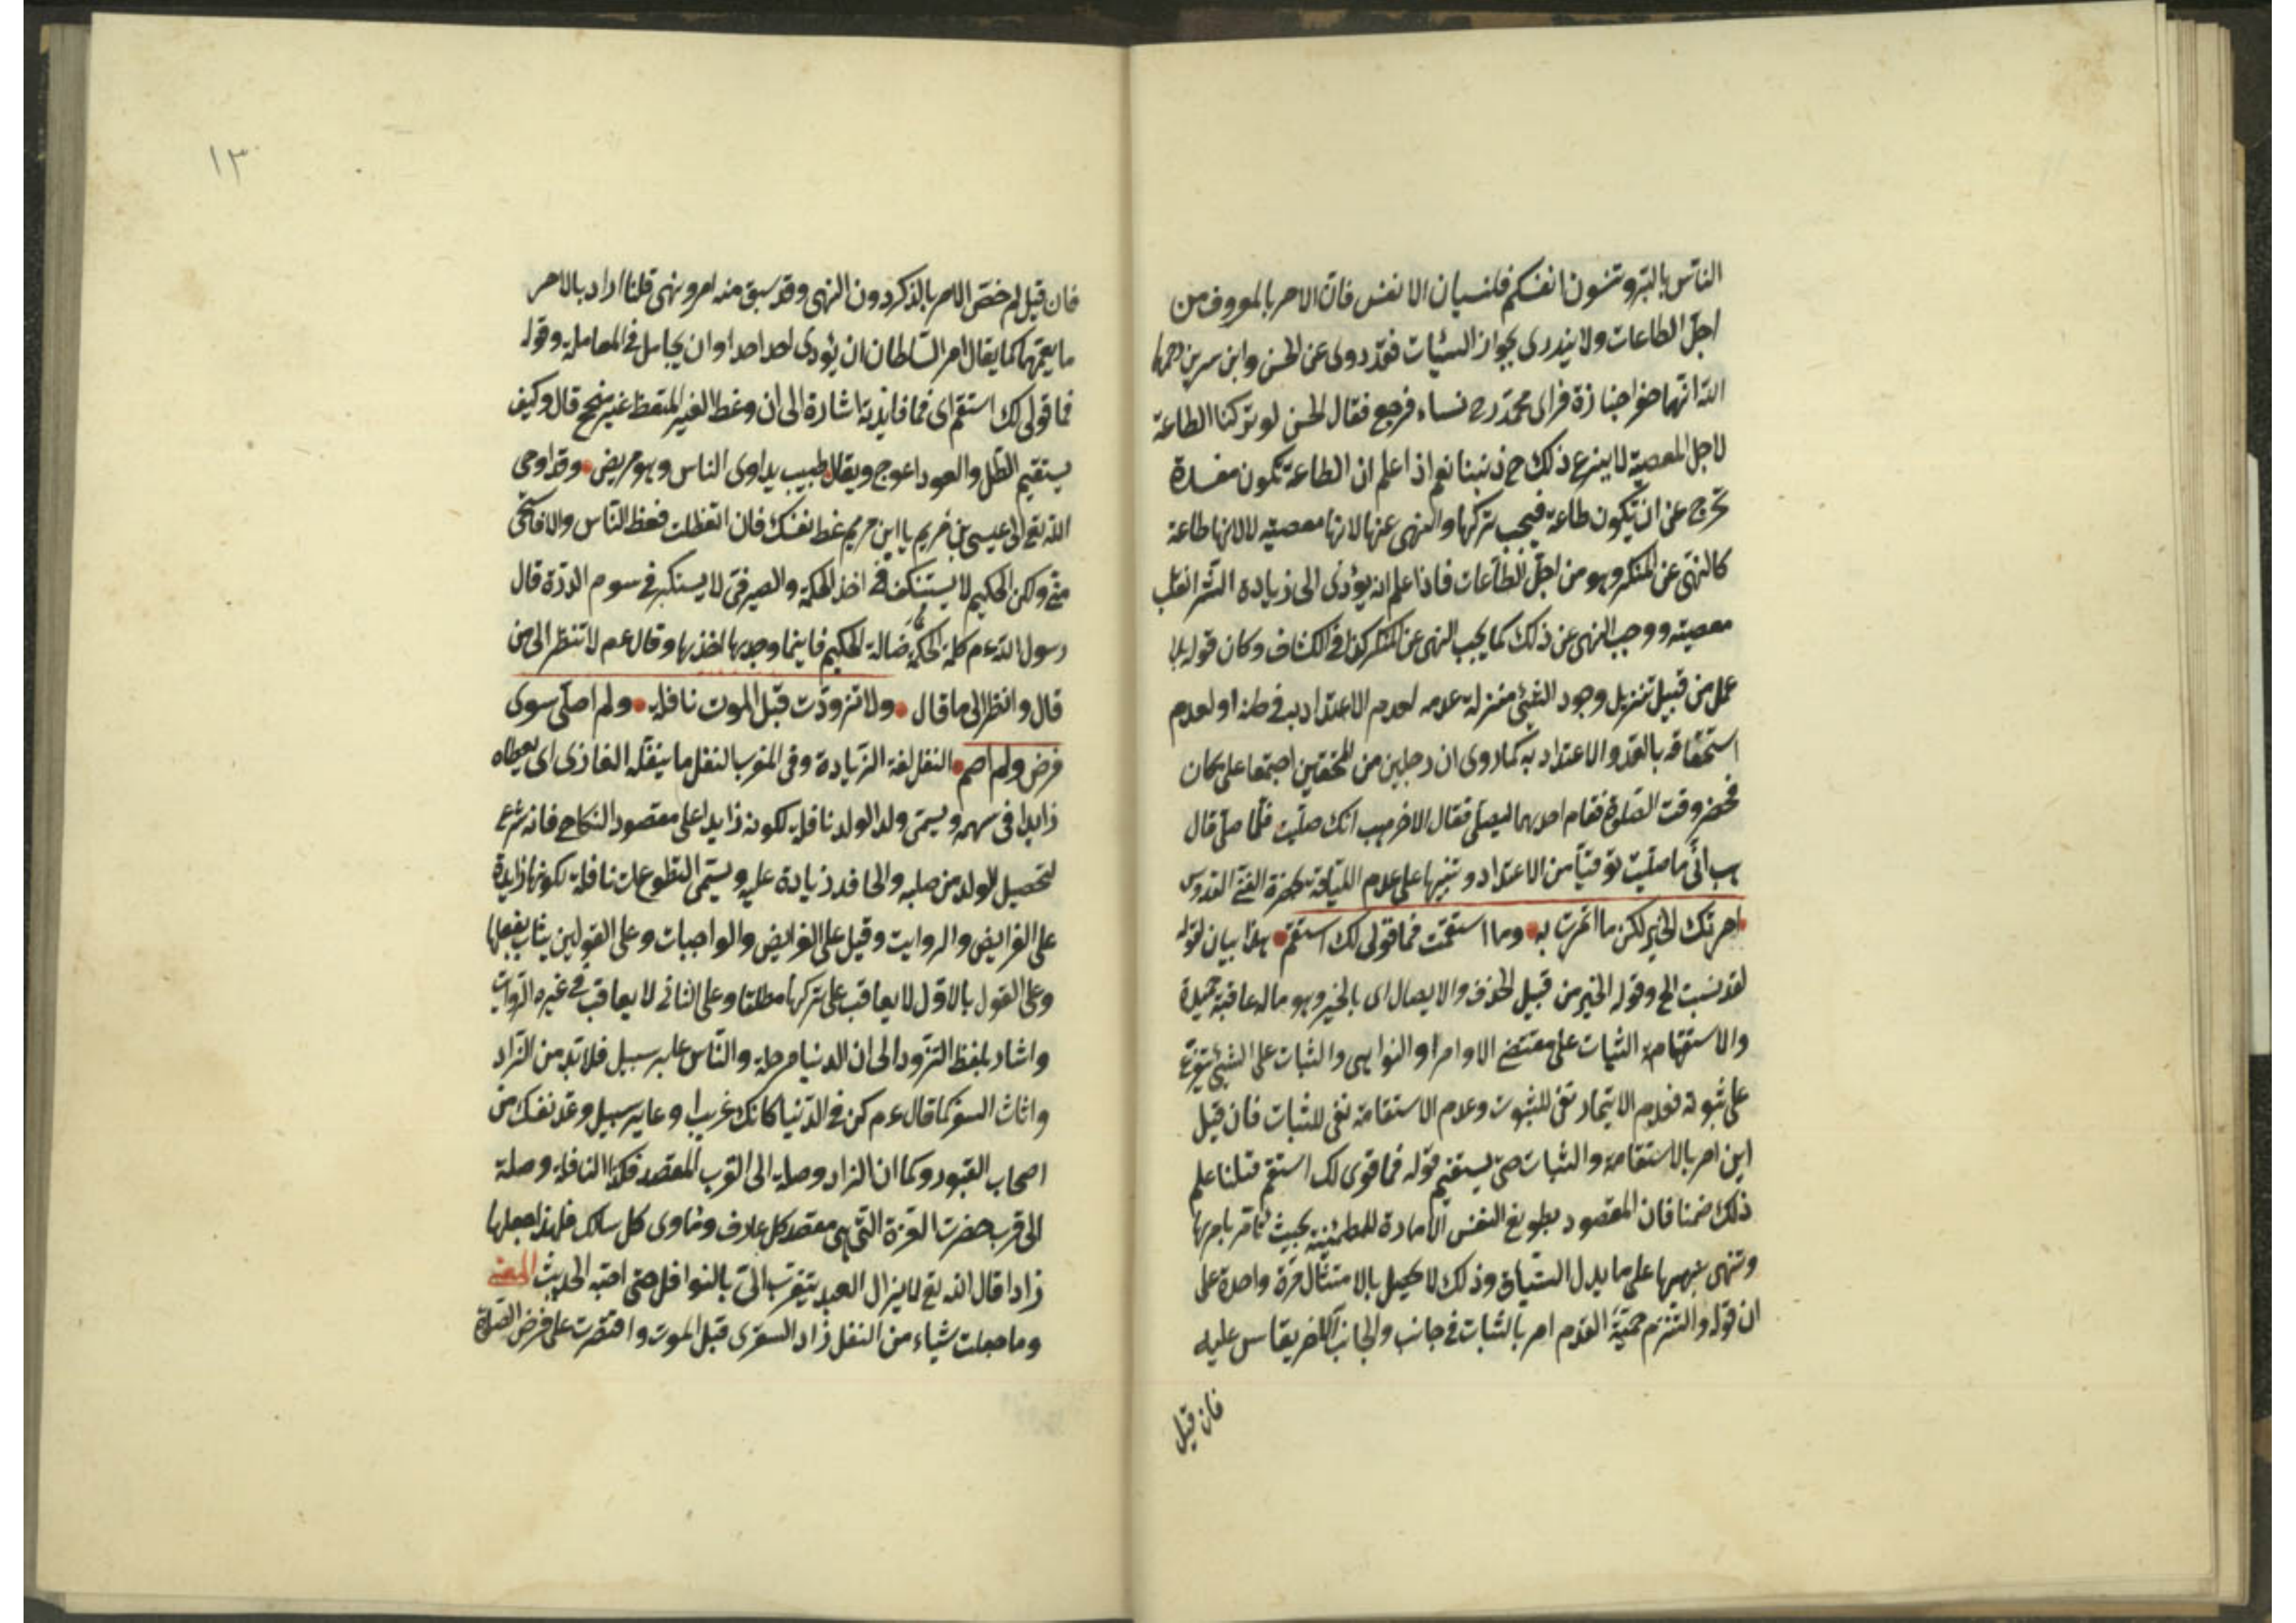 الناس بالبر وتنسون انفسكم فلنسيان الانفس فان الامر بالمعروف من
اجل الطاعات ولا يندرى بجواز السيئات فقد روى عن الحسن وابن سرين رحمها
الله انهما حضرا جنازة فراى محمد رح نساء فرجع فقال الحسن لو تركنا الطاعة
لاجل المعصية لا ييسرع ذلك ح ذنبنا نعم اذا علم ان الطاعة تكون مفسدة
تخرج عن ان يكون طاعة فيجب تركها والنهى عنها لانها معصية لا لانها طاعة
كالنهى عن المنكر وهو من اجل الطاعات فاذا علم انه يؤدى الى زيادة الشر انقلب
معصية ووجب النهى عن ذلك كما يجب النهى عن المنكر كذا فى الكشاف وكان قوله بلا
عمل من قبيل تنزيل وجود الشئ منزلة عدمه لعدم الاعتداد به فى ظنه او لعدم
استحقاقه بالعد والاعتداد به كما روى ان رجلين من المحققين اجتمعا على مكان
فحضر وقت الصلوة فقام احدهما ليصلى فقال الاخر هب انك صليت فلما صلى قال
هب انى ما صليت توقيا من الاعتداد وتنبيها على عدم اللياقة بحضرة الغنى القدوس
امرتك الخير لكن ما ائتمرت به وما استقمت فما قولى لك استقم هذا بيان لقوله
لقد نسبت الخ وقوله الخير من قبيل الحذف والايصال اى بالخير وهو ماله عاقبة حميدة
والاستقامة الثبات على مقتضى الاوامر والنواهى والثبات على الشئ يتفرع
على ثبوته فعدم الايتمار نفى للثبوت وعدم الاستقامة نفى للثبات فان قيل
اين امر بالاستقامة والثبات حتى يستقيم قوله فما قوى لك استقم قلنا علم
ذلك ضمنا فان المقصود بطويع النفس الامارة للمطمئنية بحيث تاتمر بامرها
وتنهى بنهيها على ما يدل السياق وذلك لا يحصل بالامتثال مرة واحدة على
ان قوله والتزم حمية الندم امر بالثبات فى جانب والجانب الاخر يقاس عليه
فان قيل
١٣
فان قيل لم خص الامر بالذكر دون النهى وقد سبق منه امر ونهى قلنا اراد بالامر
ما يعمهما كما يقال امر السلطان ان يؤدى احد احدا وان يجامل فى المعاملة وقوله
فما قولى لك استقم اى فما فايدته اشارة الى ان وعظ الغير المتعظ غير منجح قال وكيف
يستقيم الظل والعود اعوج ويقال طبيب يداوى الناس وهو مريض وقد اوحى
الله تع الى عيسى بن مريم يا ابن مريم عظ نفسك فان اتعظت فعظ الناس والا فاستحى
منى ولكن الحكيم لا يستنكف فى اخذ الحكمة والصيرفى لا يستكبر فى سوم الدرة قال
رسول الله ءم كلمة الحكمة ضالة الحكيم فاينما وجدها اخذها وقال عم لا تنظر الى من
قال وانظر الى ما قال ولا تزودت قبل الموت نافلة ولم اصلى سوى
فرض ولم اصم النفل لغة الزيادة وفى المغرب النفل ما ينفله الغازى اى يعطاه
زايدا فى سهمه ويسمى ولد الولد نافلة لكونه زايدا على مقصود النكاح فانه شرع
لتحصيل للولد من صلبه والحافد زيادة عليه ويسمى التطوعات نافلة لكونها زايدة
على الفرايض والروايت وقيل على الفرايض والواجبات وعلى القولين يثاب بفعلها
وعلى القول بالاول لا يعاقب على تركها مطلقا وعلى الثانى لا يعاقب فى غيره الروات
واشار بلفظ التزود الى ان الدنيا مرحلة والناس عابر سبيل فلابد من الزاد
واثاث السفر كما قال ءم كن فى الدنيا كانك غريب او عابر سبيل وعد نفسك من
اصحاب القبور وكما ان الزاد وصلة الى القرب المقصد فكذا النافلة وصلة
الى قرب حضرت العزة التى هى مقصد كل عارف ومأوى كل سالك فلهذا جعلها
زادا قال الله تع لا يزال العبد يتقرب الى بالنوافل حتى احبه الحديث المعنى
وما جعلت شياء من النفل زاد السفرى قبل الموت واقتصرت على فرض الصلوة